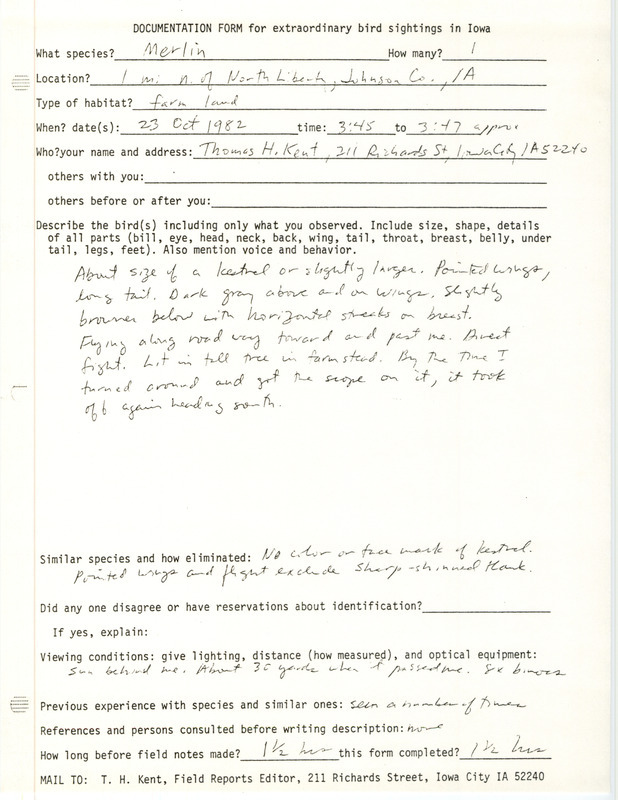 DOCUMENTATION FORM for extraordinary bird sightings in Iowa
What species? Merlin How many? 1
Location? 1 mi n. of North Liberty, Johnson Co., IA
Type of habitat? farm land
When? date(s): 23 Oct 1982 time: 3:45 to 3:47 approx
Who?your name and address: Thomas H. Kent, 211 Richards St, Iowa City IA 52240
others with you:
others before or after you:
Describe the bird(s) including only what you observed. Include size, shape, details
of all parts (bill, eye, head, neck, back, wing, tail, throat, breast, belly, under
tail, legs, feet). Also mention voice and behavior.
About size of a Kestral or slightly larger. Pointed wings,
long tail. Dark gray above and on wings. Slightly
browner below with horizontal streaks on breast.
Flying along road way toward and past me. Direct
fight. Lit in tall tree in farmstead. By the time I
turned around and got the scope on it, it took
off again heading south.
Similar species and how eliminated: No color or face mark of Kestral.
Pointed wings and flight exclude Sharp-shinned Hawk.
Did any one disagree or have reservations about identification?
If yes, explain:
Viewing conditions: give lighting, distance (how measured), and optical equipment:
Sun behind me. About 30 yards when it passed me. 8x binocs
Previous experience with species and similar ones: seen a number of times
References and persons consulted before writing description: none
How long before field notes made? 1½ hrs this form completed? 1½ hrs
MAIL TO: T. H. Kent, Field Reports Editor, 211 Richards Street, Iowa City IA 52240